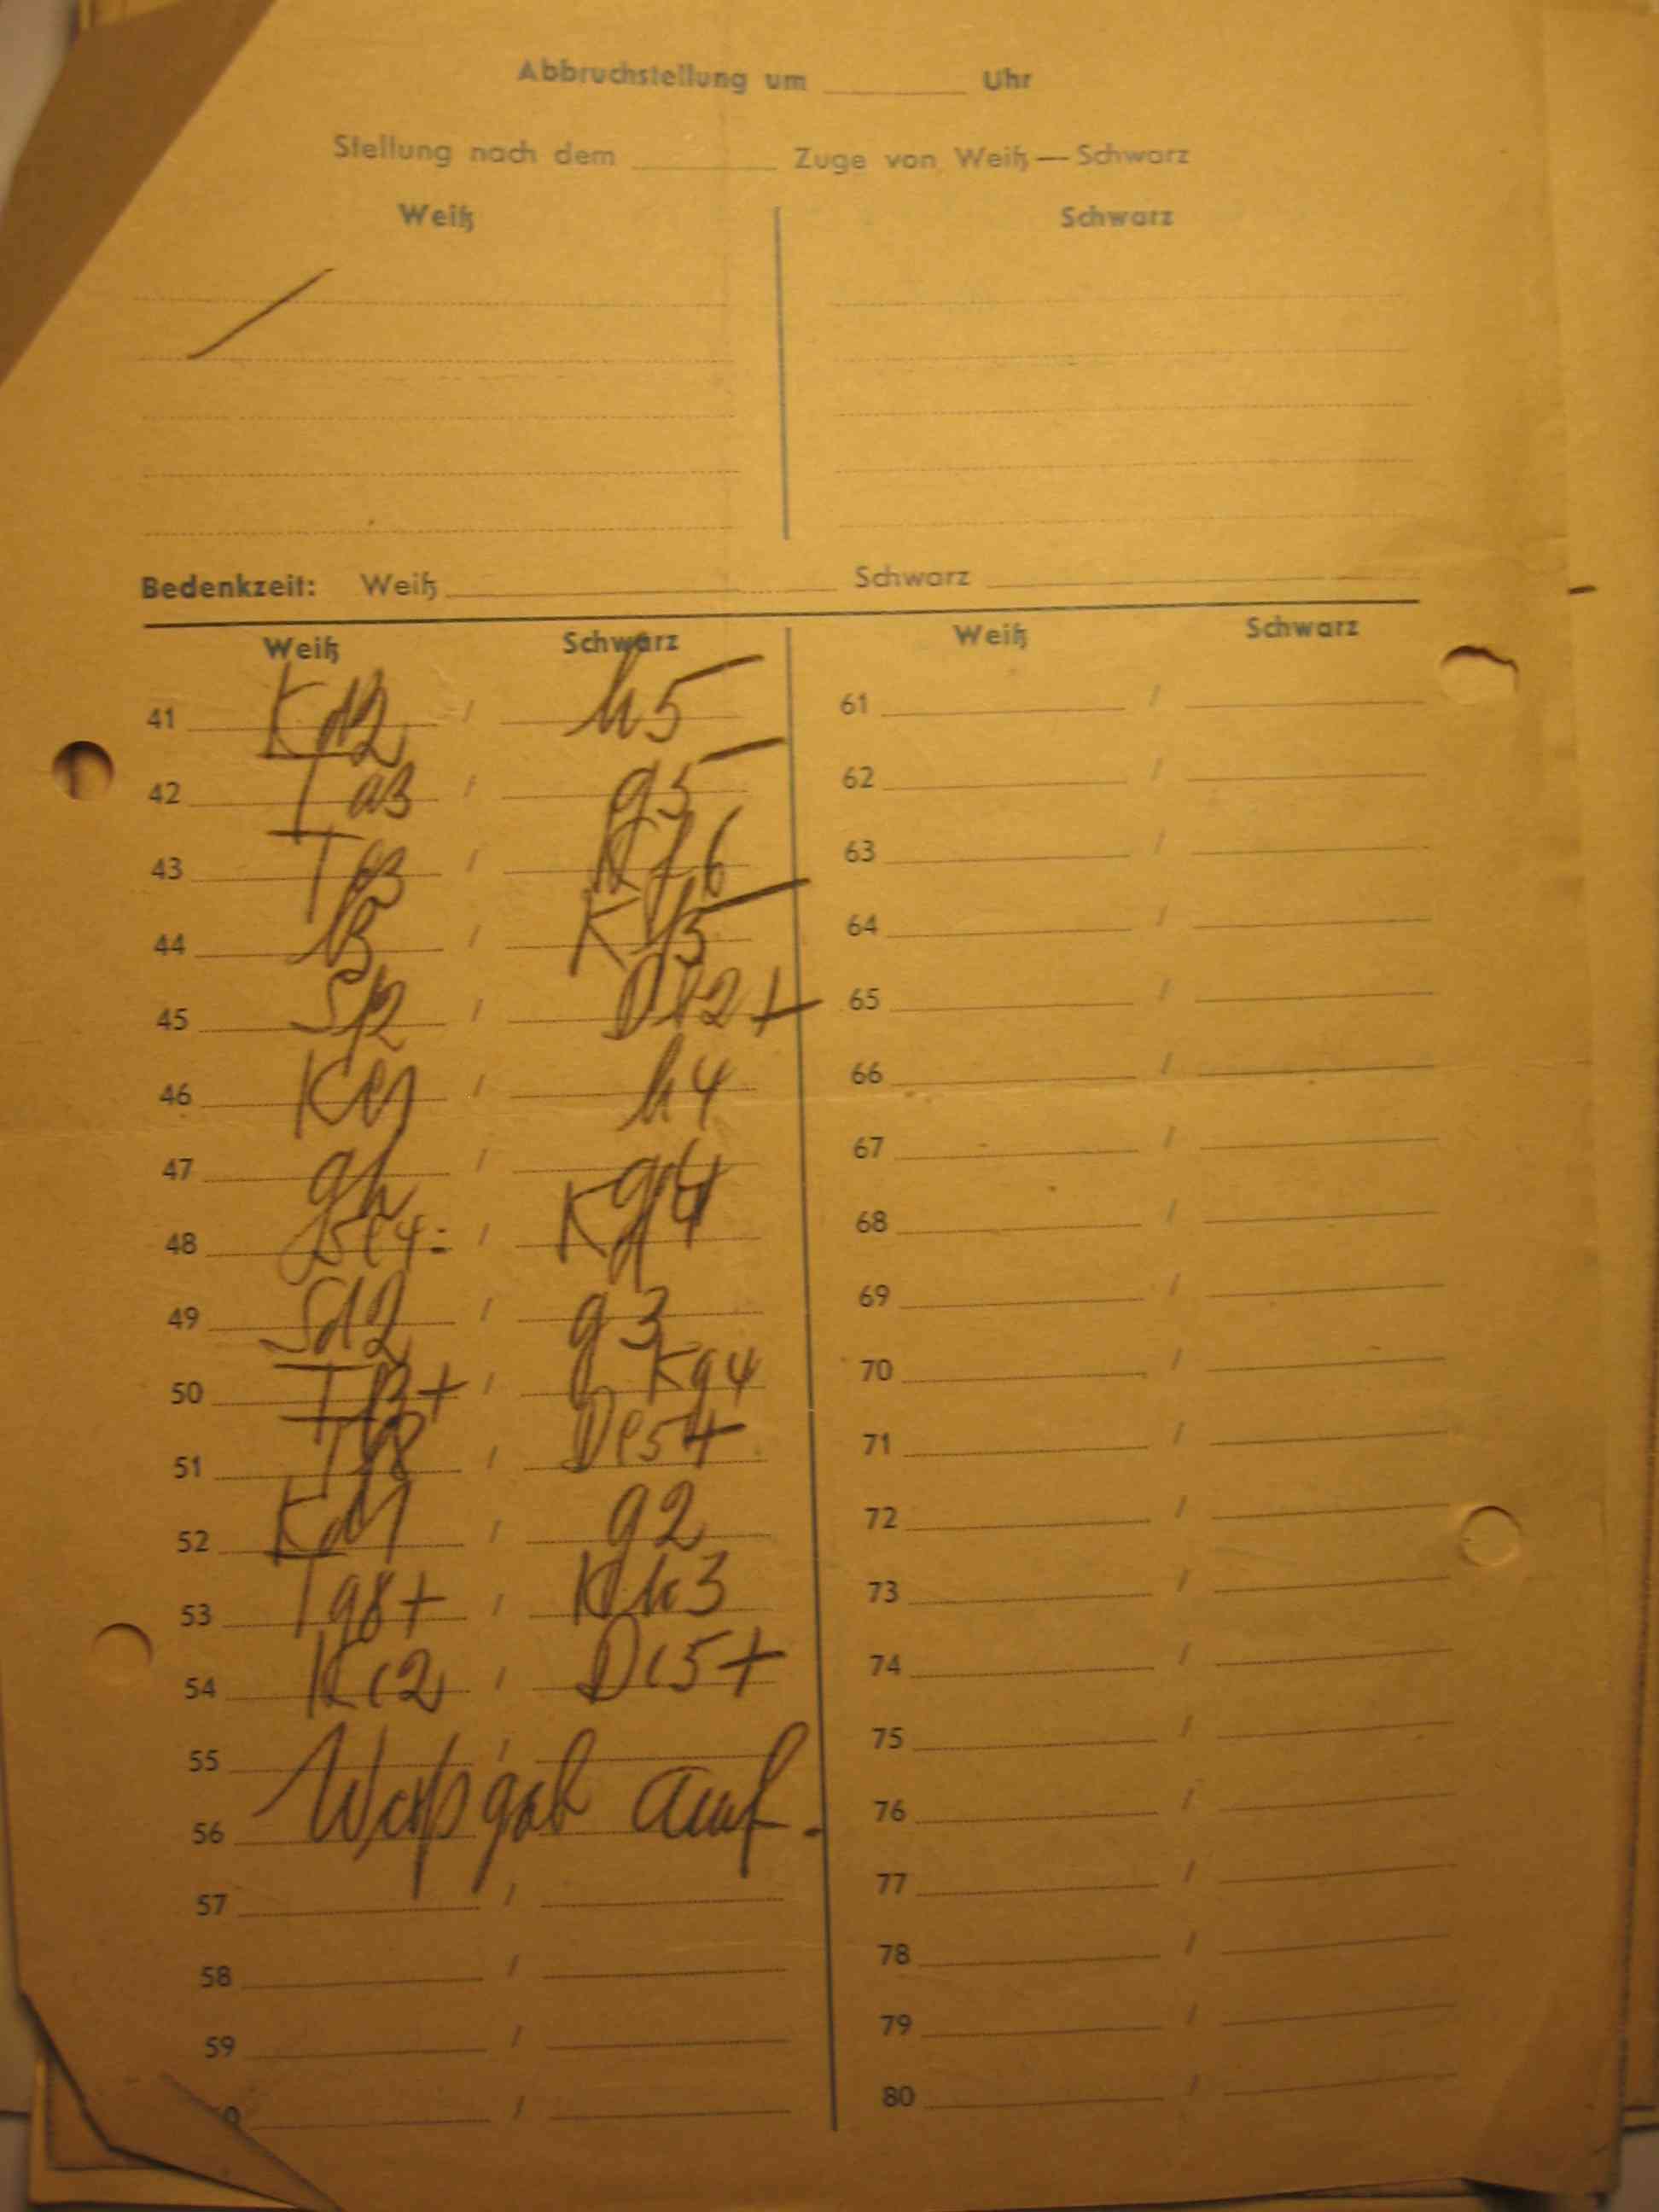 Abbruchstellung um Uhr
Stellung nach dem Zuge von Weiß — Schwarz
Weiß Schwarz
Bedenkzeit: Weiß Schwarz
Weiß Schwarz Weiß Schwarz
41 Kd2 / h5 61 /
42 Ta3 / g5 62 /
43 / 63 /
44 / 64 /
45 / 65 /
46 Ke1 / h4 66 /
47 gh / 67 /
48 / Kg4 68 /
49 Sd2 / g3 69 /
50 / Kg4 70 /
51 / De5+ 71 /
52 Kd1 / g2 72 /
53 Tg8+ / Kh3 73 /
54 Kc2 / Dc5+ 74 /
55 / 75 /
Weiß gab auf.
56 76 /
57 / 77 /
58 / 78 /
59 / 79 /
/ 80 /